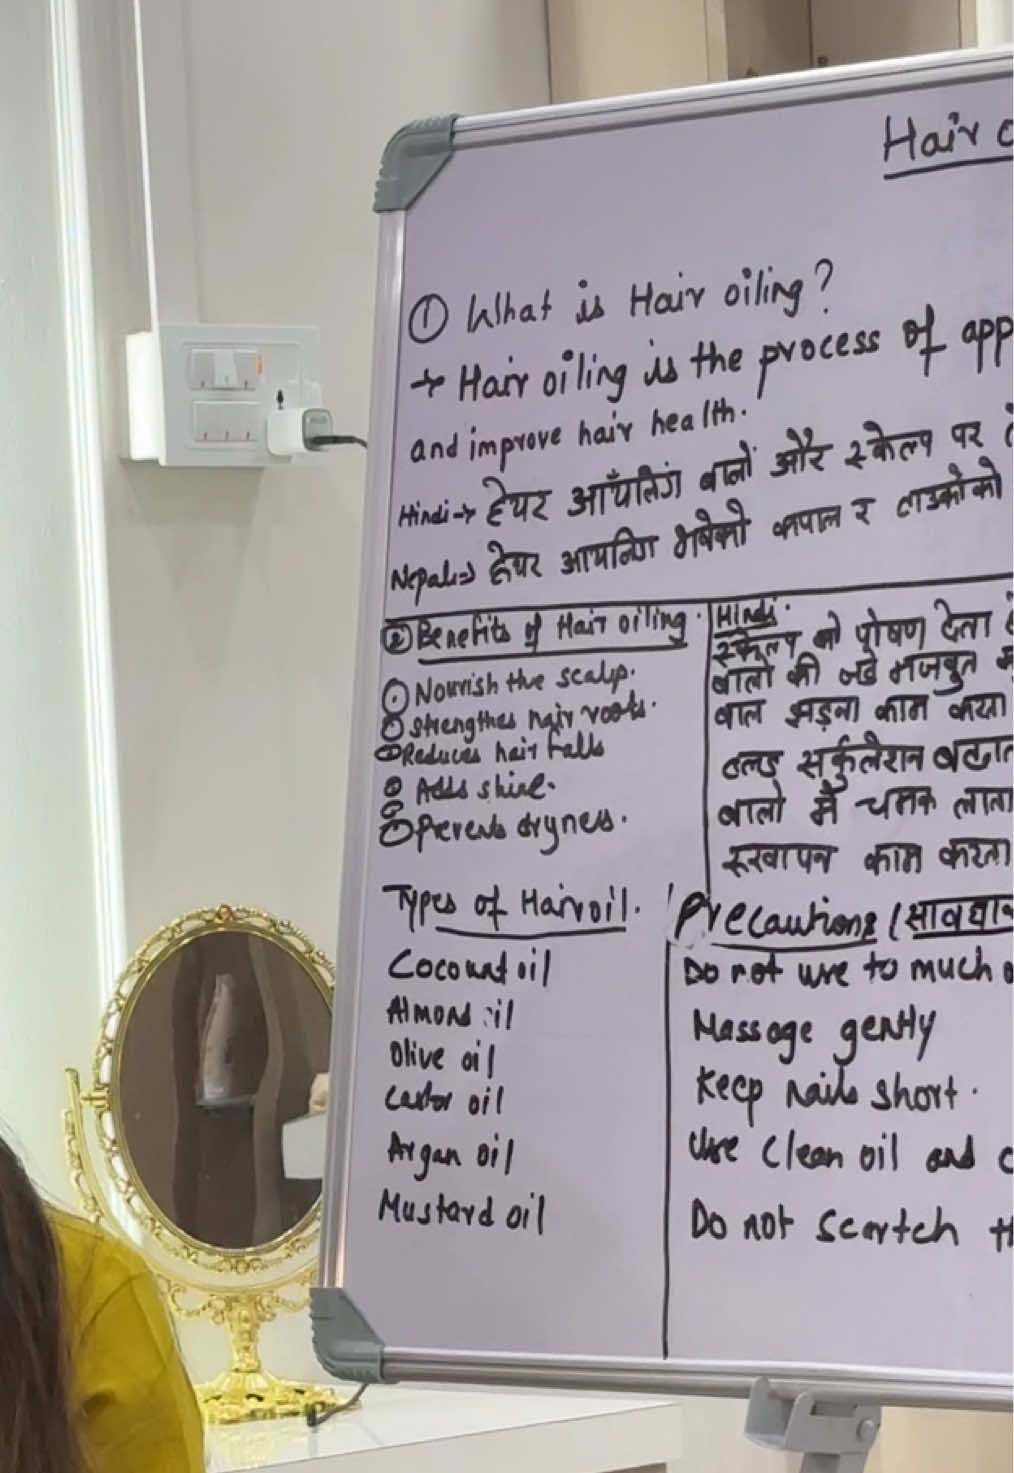 Hair
① What is Hair oiling?
→ Hair oiling is the process of app
and improve hair health.
Hindi → हेयर आँयलिंग बालों और स्केल्प पर
Nepali → हेयर आयलिग भनेको कपाल र टाउकोको
② Benefits of Hair oiling.
Nourish the scalp.
strengthes hair roots.
Reduces hair falls
Adds shine.
Prevents dryness.
Hindi.
स्केल्प को पोषण देता
बालो की जडे मजबुत
बाल झड़ना काम करता
ब्लड सर्कुलेशन बढात
बालो में चमक लाता
रूखापन काम करता
Types of Hair oil.
Cocount oil
Almond oil
Olive oil
Castor oil
Argan oil
Mustard oil
Precautions (सावधान
Do not use to much
Massage gently
Keep nails short.
Use Clean oil and c
Do not scartch th